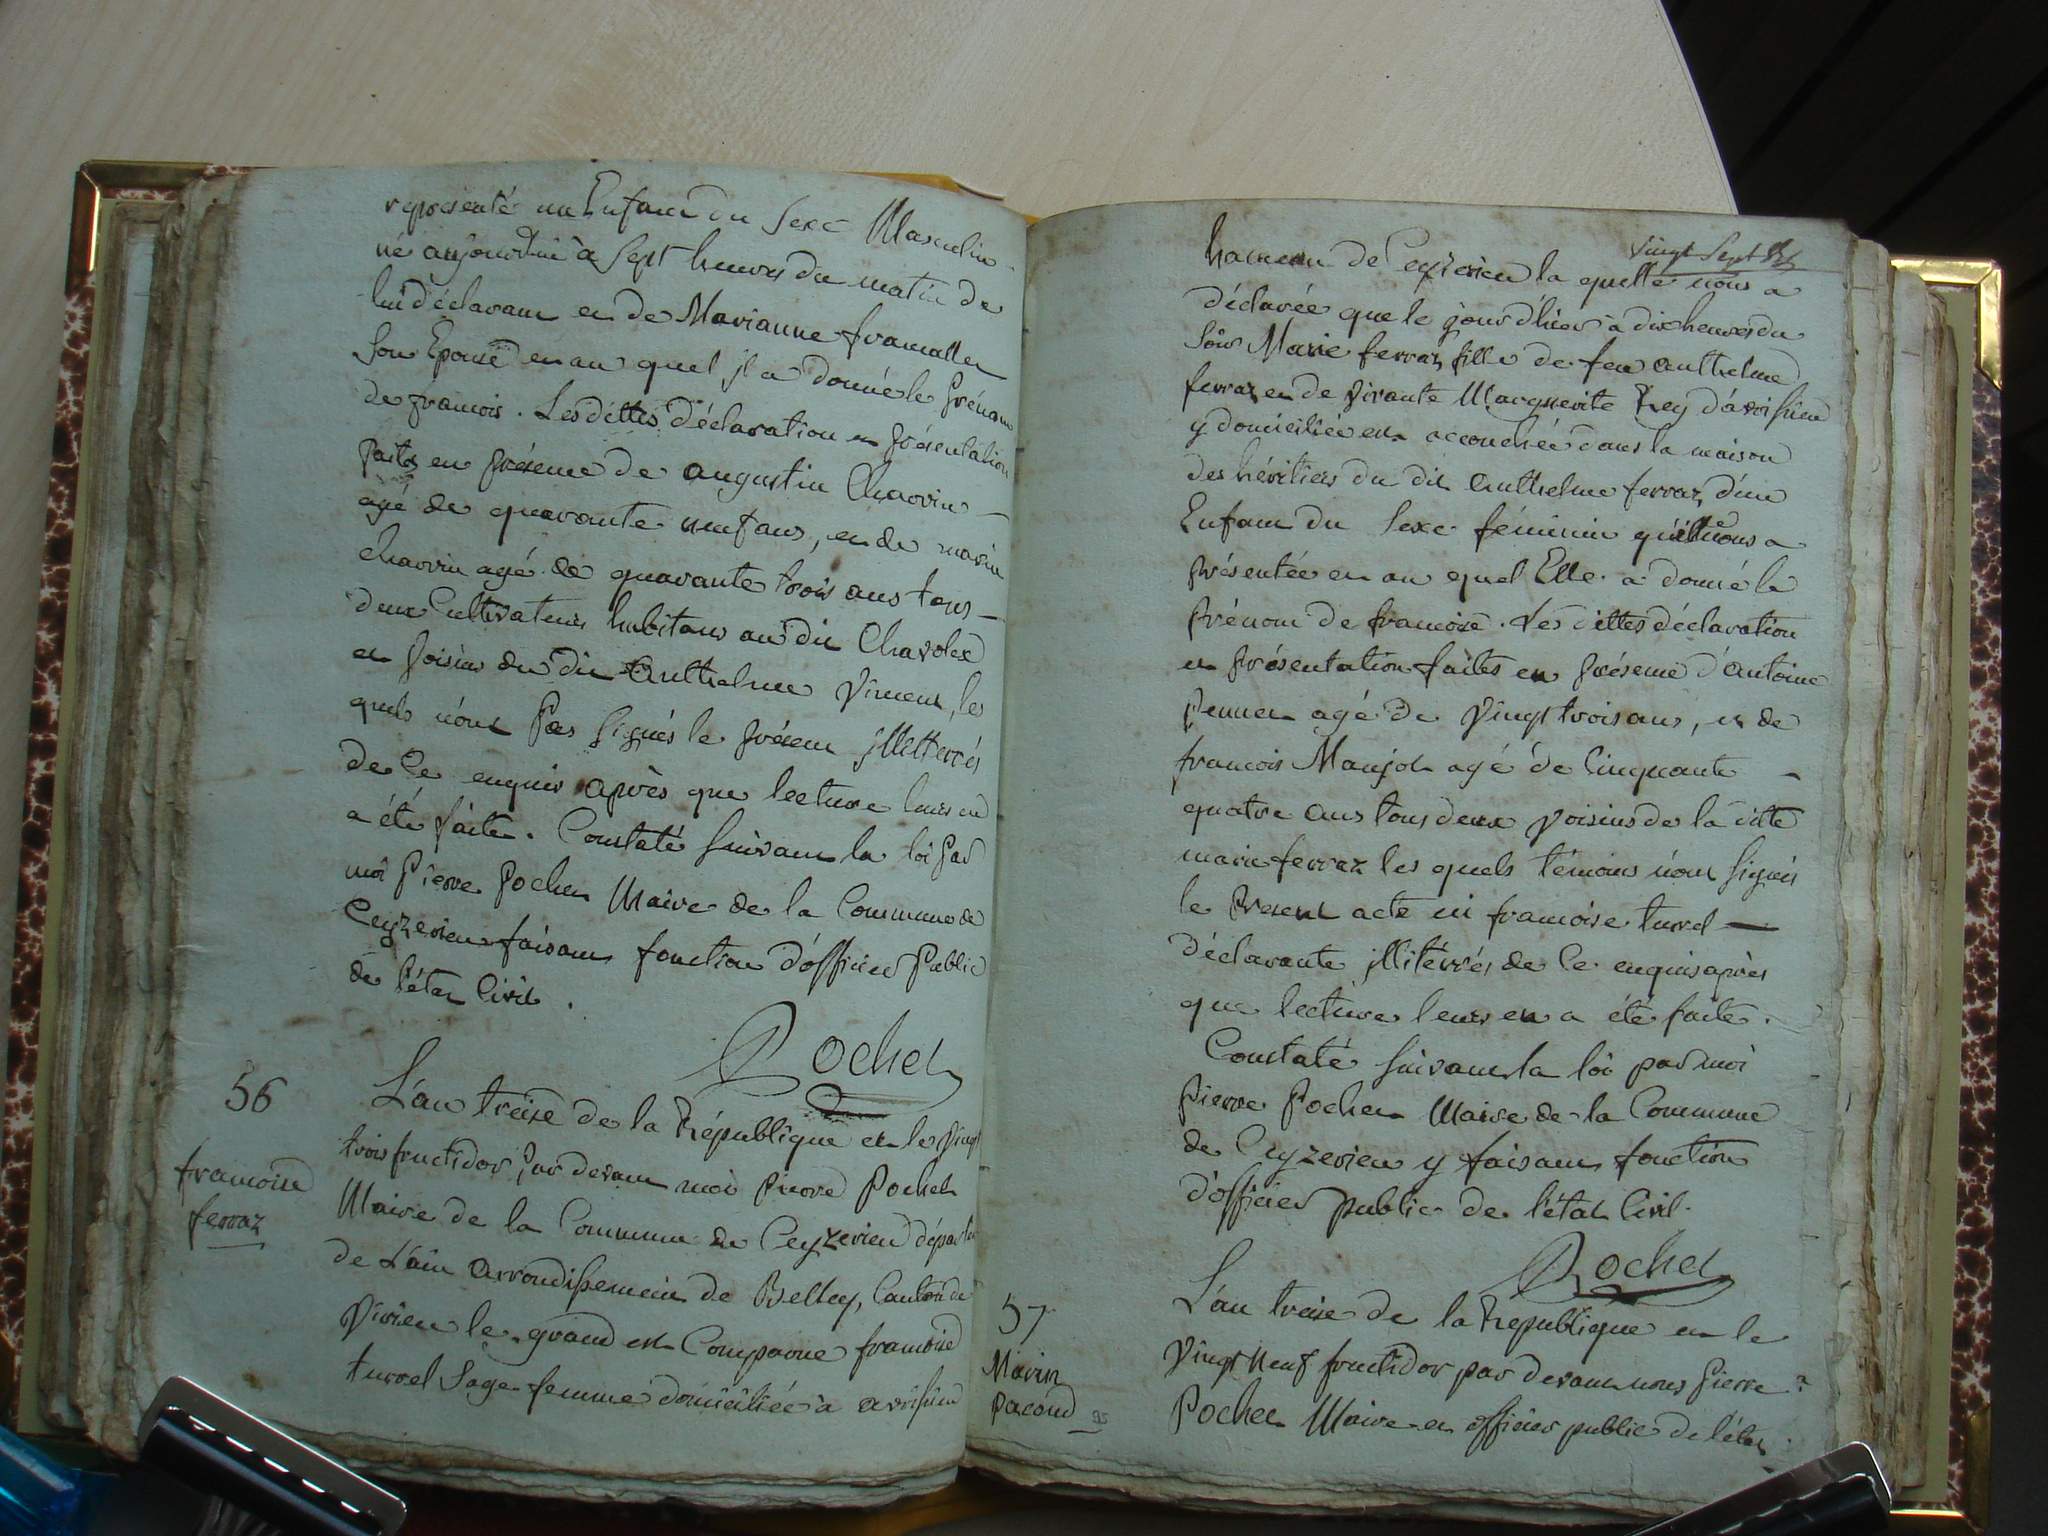 représenté un Enfant du Sexe Masculin
né aujourdhui à Sept heures du matin de
lui déclarant et de Marianne
Son Epouse et au quel il a donné le Prénom
de francois. Les dittes déclaration et présentation
faites en présence de augustin Charvin
agé de quarante neuf ans, et de marin
Charvin agé de quarante trois ans tous
deux Cultivateurs habitans au dit Chavolex
et Voisins du dit Anthelme les
quels n'ont Pas Signés le présent illetterrés
de Ce enquis après que lecture leurs en
a été faite. Constaté Suivant la loi Par
moi Pierre Pochet Maire de la Commune de
Ceyzerieu faisant fonction d'officier Public
de l'état Civil.
Pochet
56
francoise
ferraz
L'an treize de la République et le Vingt
trois fructidor, par devant moi Pierre Pochet
Maire de la Commune de Ceyzerieu départ
de L'ain arrondissement de Belley, Canton de
Virieu le grand est Comparue francoise
turrel Sage femme domiciliée à avrissieu
Vingt Sept
hameau de Ceyzerieu la quelle nous a
déclarée que le jour d'hier à dix heures du
Soir Marie ferraz fille de feu anthelme
ferraz et de Vivante Marguerite Rey d'avrissieu
y domiciliée est accouchée dans la maison
des héritiers du dit anthelme ferraz d'un
Enfant du Sexe féminin nous a
présentée et au quel Elle a donné le
Prénom de francoise. Les dittes déclaration
et présentation faites en présence d'antoine
agé de Vingt trois ans, et de
francois Manjot agé de Cinquante
quatre ans tous deux Voisins de la ditte
marie ferraz les quels témoins n'ont Signés
le Present acte ni francoise turrel
déclarante illitérrés de Ce enquis après
que lecture leurs en a été faite.
Constaté Suivant la loi par moi
Pierre Pochet Maire de la Commune
de Ceyzerieu y faisant fonction
d'officier public de l'état Civil.
Pochet
57
Marin
pacoud
95
L'an treize de la République et le
Vingt Neuf fructidor par devant nous Pierre
Pochet Maire et officier public de l'état